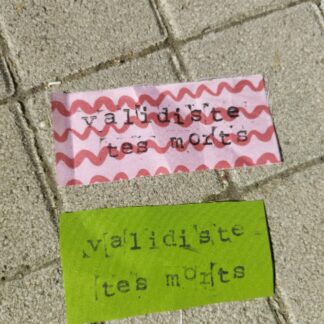 validiste
tes morts
validiste
tes morts